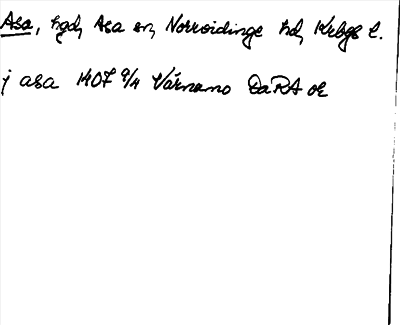 Asa, hgd, Asa sn, Norrvidinge hd, Krbgs l.
j asa 1407 9/4 Värnamo DaRA or